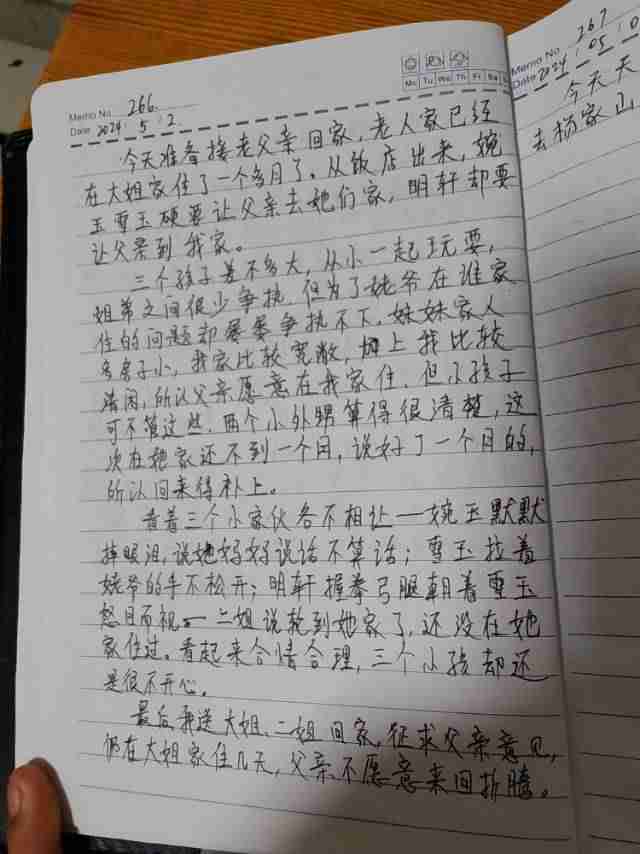 Memo No. 266
Date 2024 / 5 / 2
Mo Tu We Th Fr Sa
今天准备接老父亲回家，老人家已经
在大姐家住了一个多月了。从饭店出来，婉
玉雪玉硬要让父亲去她们家，明轩却要
让父亲到我家。
三个孩子差不多大，从小一起玩耍，
姐弟之间很少争执，但为了姥爷在谁家
住的问题却屡屡争执不下，妹妹家人
多房子小，我家比较宽敞，加上我比较
清闲，所以父亲愿意在我家住，但小孩子
可不管这些，两个小外甥算得很清楚，这
次在她家还不到一个月，说好了一个月的，
所以回来得补上。
看着三个小家伙各不相让——婉玉默默
掉眼泪，说她妈妈说话不算话；雪玉拉着
姥爷的手不松开；明轩握拳弓腿朝着雪玉
怒目而视。——二姐说轮到她家了，还没在她
家住过。看起来合情合理，三个小孩却还
是很不开心。
最后我送大姐、二姐回家，征求父亲意见，
仍在大姐家住几天，父亲不愿意来回折腾。
Memo No. 267
Date 2024 / 05 / 0
今天天
去杨家山